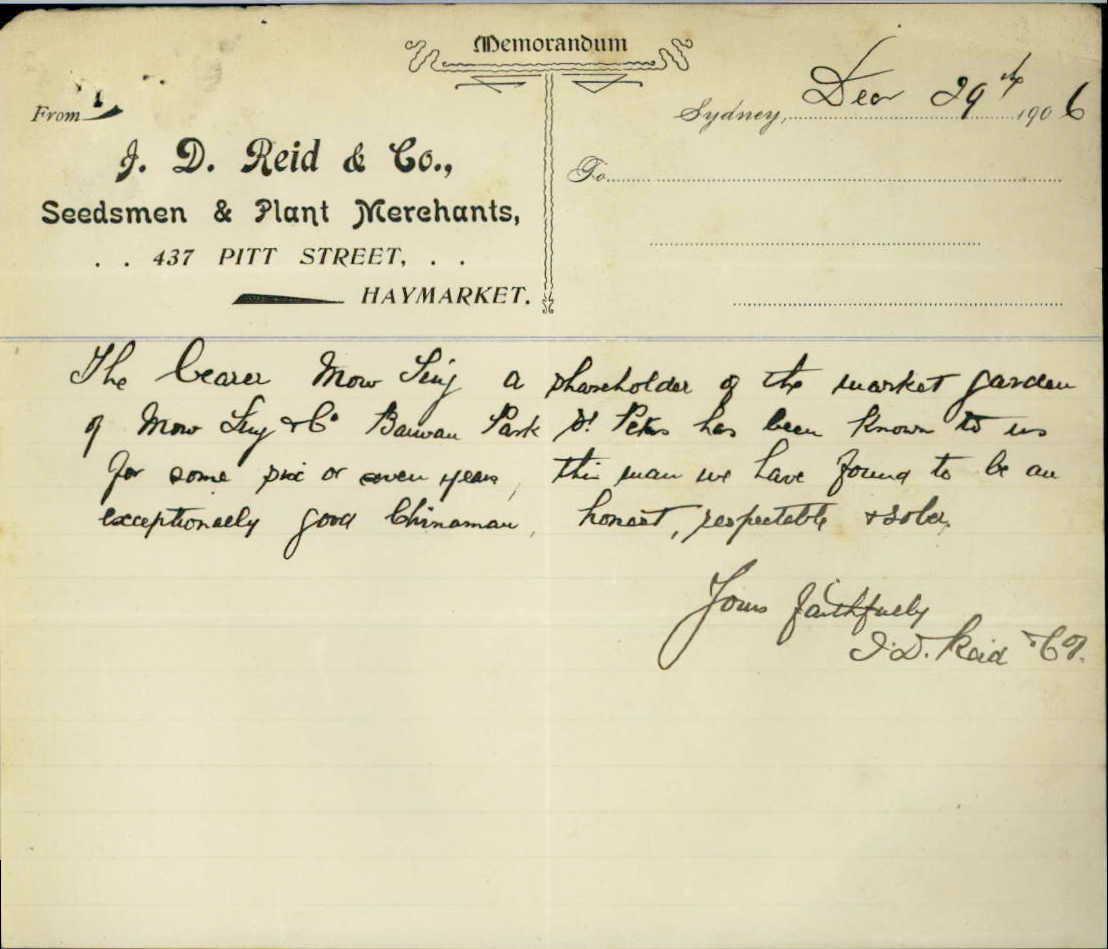 Memorandum
From
J. D. Reid & Co.,
Seedsmen & Plant Merchants,
. . 437 PITT STREET, . .
HAYMARKET.
Sydney, Dec 29th 1906
To
The bearer Mow Sing a shareholder of the market garden
of Mow Sing & Co Park St Peters has been known to us
for some six or seven years, this man we have found to be an
exceptionally good Chinaman, honest, respectable & sober,
Yours faithfully
J. D. Reid & Co.